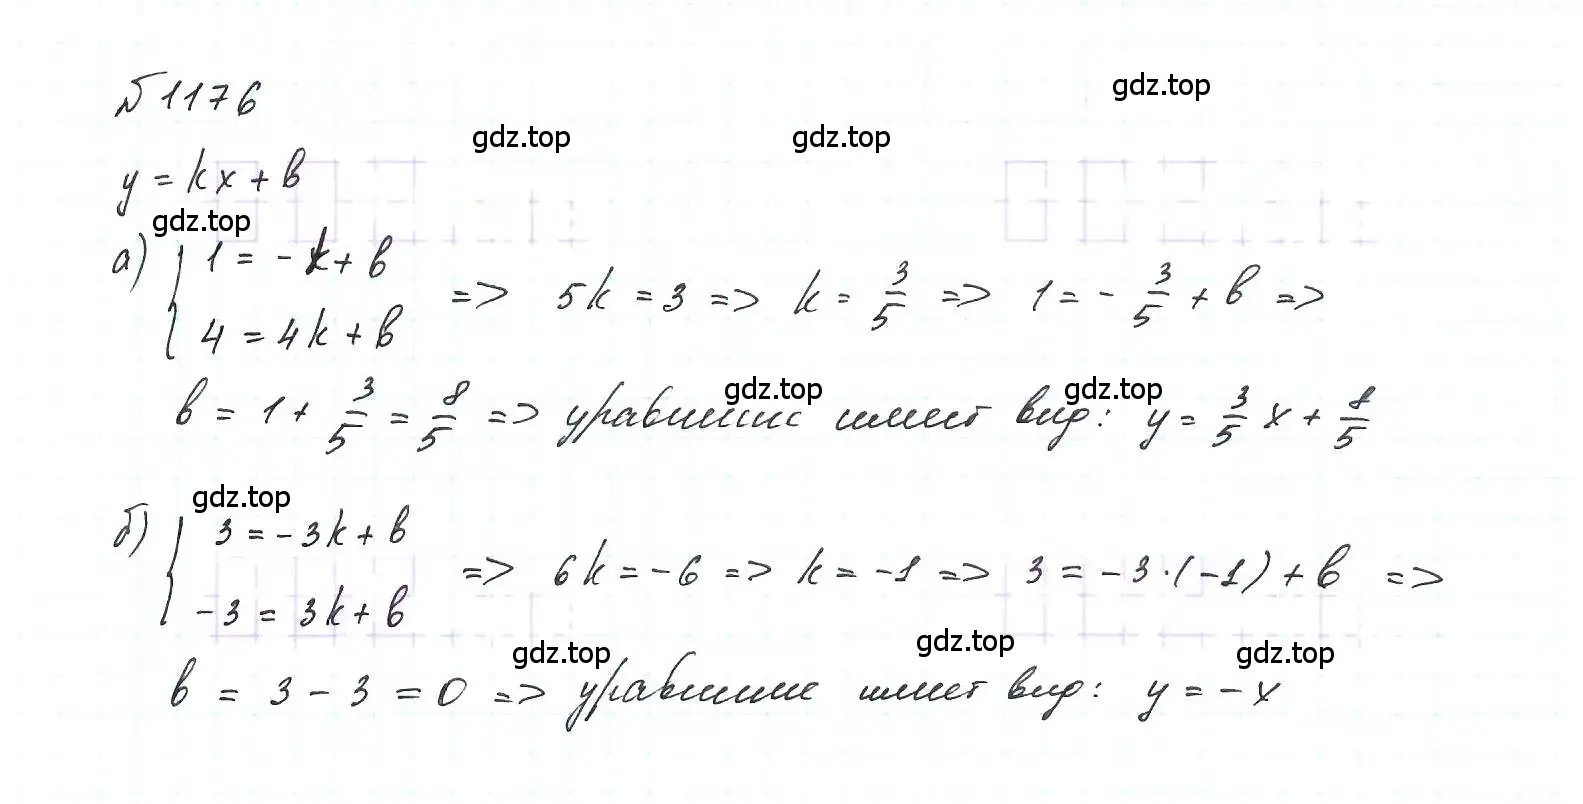 №1176
gdz.top
gdz.top gdz.top
y = kx + b
gdz.top
а) { 1 = -k + b
4 = 4k + b
=> 5k = 3 => k = 3/5 => 1 = - 3/5 + b =>
gdz.top gdz.top
b = 1 + 3/5 = 8/5 => уравнение имеет вид: y = 3/5 x + 8/5
gdz.top
б) { 3 = -3k + b
-3 = 3k + b
=> 6k = -6 => k = -1 => 3 = -3·(-1) + b =>
gdz.top gdz.top gdz.top
b = 3 - 3 = 0 => уравнение имеет вид: y = -x